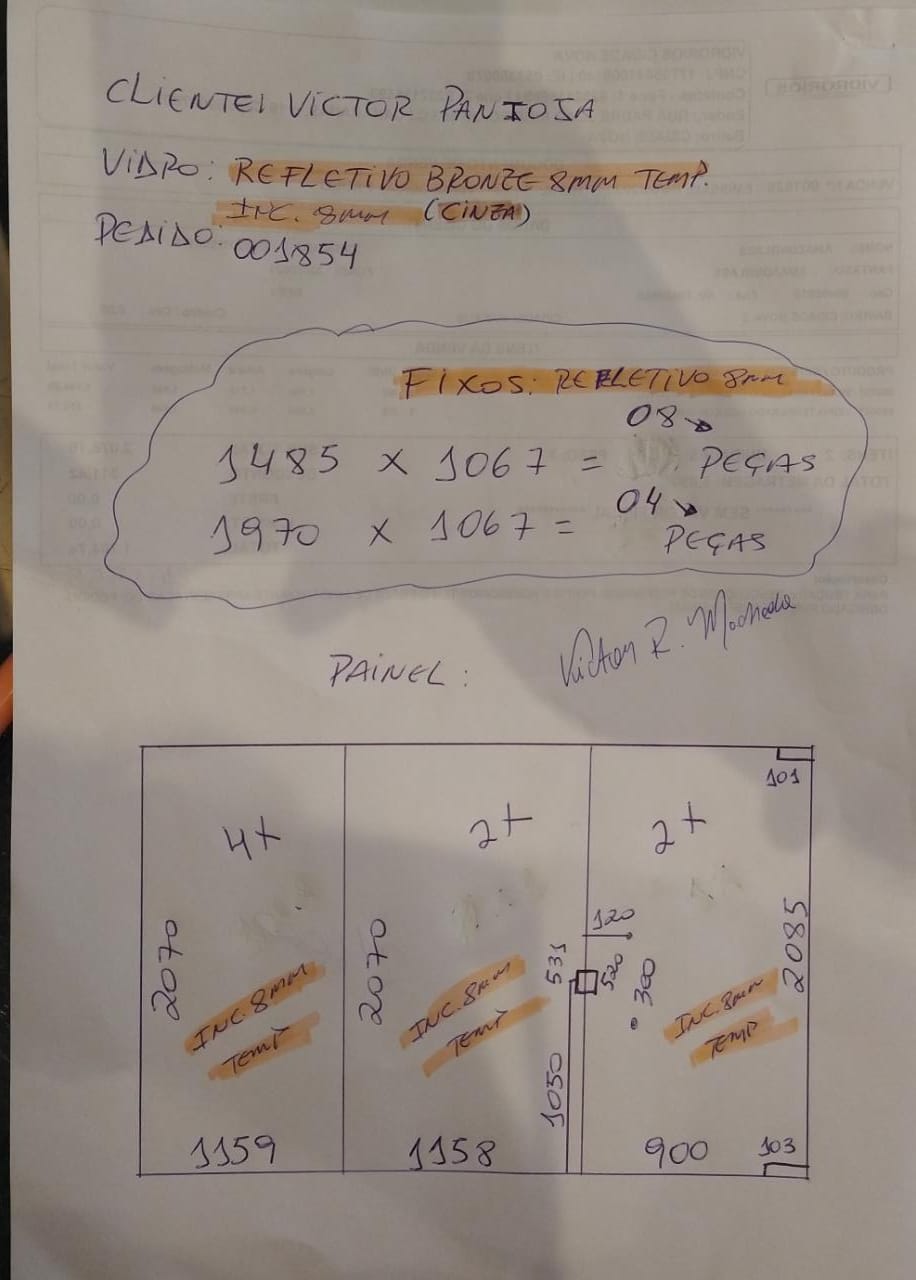 CLIENTE: VICTOR PANTOJA
VIDRO: REFLETIVO BRONZE 8MM TEMP.
INC. 8mm (CINZA)
PEDIDO: 001854
FIXOS: REFLETIVO 8mm
1485 x 1067 = 08 PEÇAS
1970 x 1067 = 04 PEÇAS
PAINEL: Victor R. Machado
101
4+ 2+ 2+
120
2070 2070 531 520 300 2085
INC. 8MM TEMP
INC. 8MM TEMP
INC. 8MM TEMP
1050
1159 1158 900 103